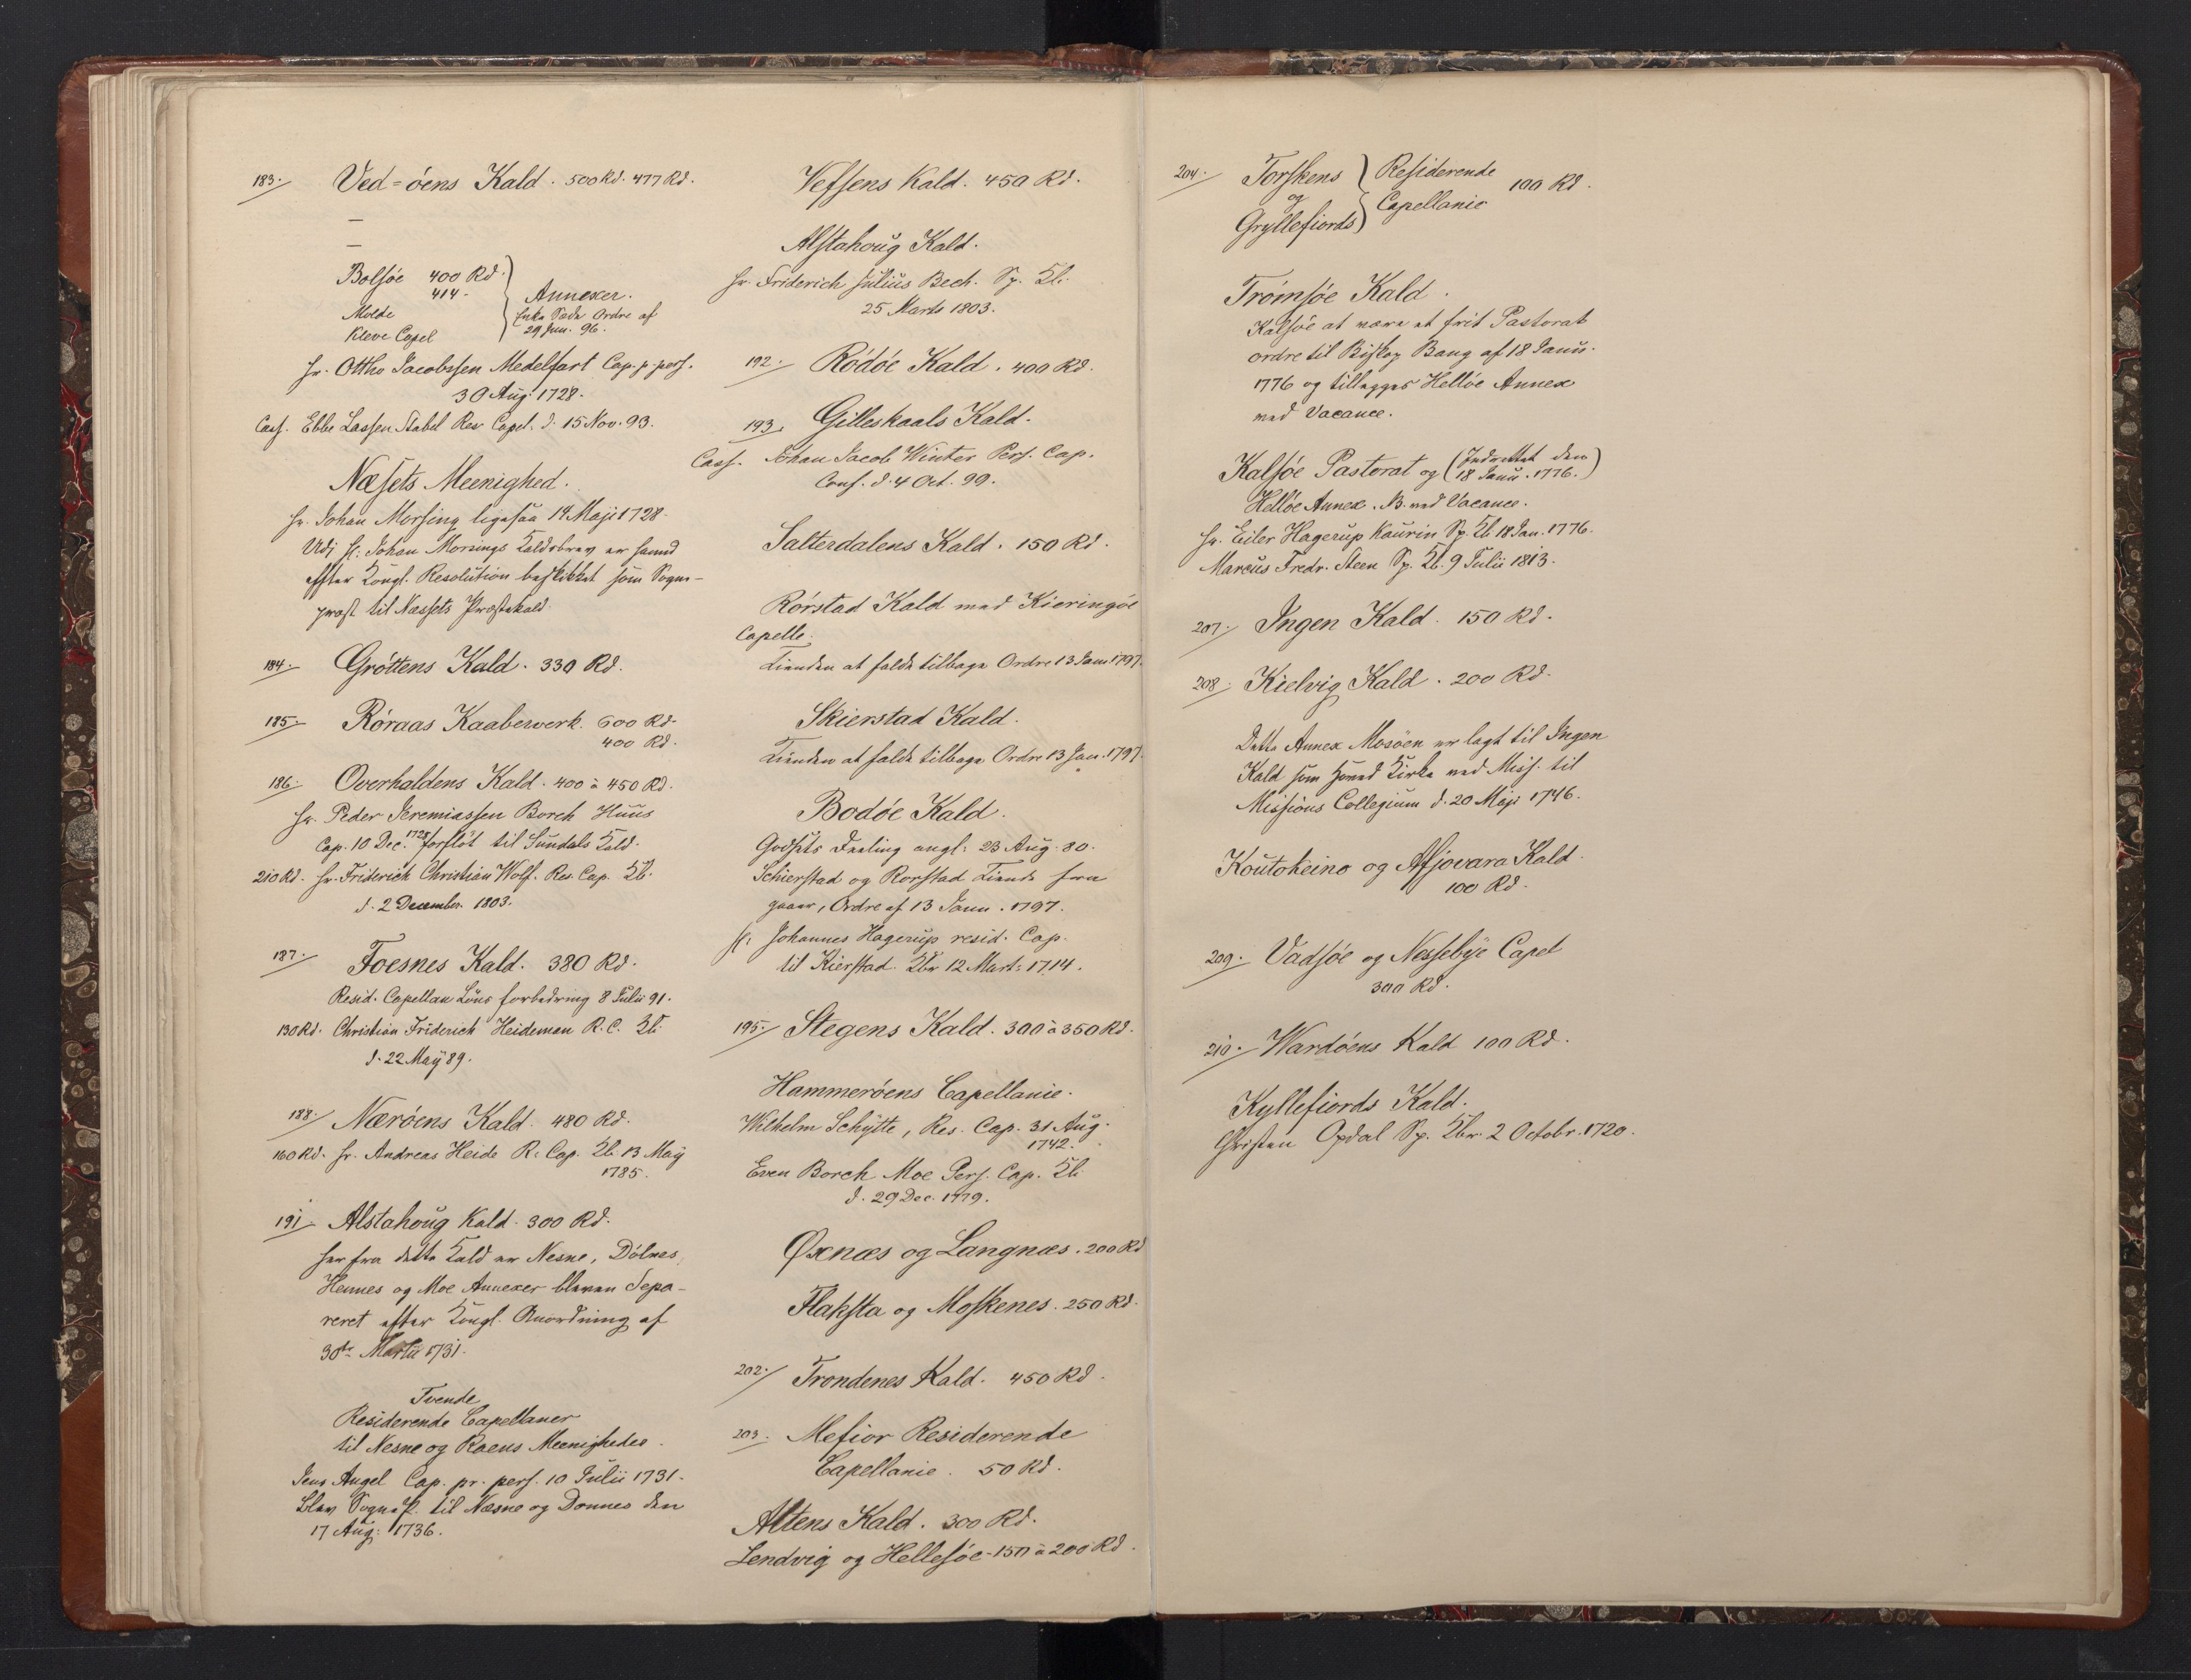 183. Ved=öens Kald. 500 Rd. 477 Rd.
—
—
Bolsöe 400 Rd.
414.
Molde
Kleve Capel
Annexer.
Enke Sæde Ordre af
29 Jun. 96.
Hr. Ottho Jacobssen Medelfart Cap. p. pers.
30 Aug. 1728.
Cass. Ebbe Lassen Stabel Res Capel. d. 15 Nov. 93.
Næsets Meenighed.
Hr. Johan Morsing ligesaa 14 Maji 1728.
Udi Hr. Johan Morsings Kaldsbrev er hannd
efter Kongl. Resolution beskikket som Sogne-
præst til Næssets Præstekald.
184. Gröttens Kald. 330 Rd.
185. Röraas Kaaberverk. 600 Rd.
400 Rd.
186. Overhaldens Kald. 400 à 450 Rd.
Hr. Peder Jeremiassen Borch Huus
Cap. 10 Dec. 1728 forflöt til Sundals Kald.
210 Rd. Hr. Friderich Christian Wolf. Res. Cap. Kb.
d. 2 December 1803.
187. Foesnes Kald. 380 Rd.
Resid. Capellan Löns forbedring 8 Julii 91.
130 Rd. Christian Friderich Heideman R. C. Kb.
d. 22 Maÿ 89.
188. Næröens Kald. 480 Rd.
160 Rd. Hr. Andreas Heide R. Cap. Kb. 13 Maÿ
1785.
191. Alstahoug Kald. 300 Rd.
Her fra dette Kald er Nesne, Dölnes,
Hennes og Moe Annexer bleven Sepa-
reret efter Kongl. Anordning af
30te Martii 1731.
Tvende
Residerende Capellaner
til Nesne og Raens Meenigheder.
Jens Angel Cap. pr. pers. 10 Julii 1731.
Blev Sogne P. til Næsne og Donnes den
17 Aug: 1736.
Vefsens Kald. 450 Rd.
Alstahoug Kald.
Hr. Friderich Julius Bech. Sp. Kb.
25 Marts 1803.
192. Rödöe Kald. 400 Rd.
193. Gilleskaals Kald.
Cass. Johan Jacob Winter Pers. Cap.
Conf. d. 4 Oct. 99.
Salterdalens Kald. 150 Rd.
Rörstad Kald med Kieringöe
Capelle.
Tienden at falde tilbage Ordre 13 Janu 1797.
Skierstad Kald.
Tienden at falde tilbage Ordre 13 Jan. 1797.
Bodöe Kald.
Godsets Deeling angl: 23 Aug. 80.
Schierstad og Rorstad Tiende fra
gaaer, Ordre af 13 Janu. 1797.
Hr Johannes Hagerup resid. Cap.
til Kierstad. Kbr 12 Mart: 1714.
195. Stegens Kald. 300 à 350 Rd.
Hammeröens Capellanie.
Wilhelm Schÿtte, Res. Cap. 31 Aug.
1742.
Even Borch Moe Pers. Cap. Kb.
d. 29 Dec. 1779.
Øxnæs og Langnæs. 200 Rd
Flaksta og Moskenes. 250 Rd.
202. Trondenes Kald. 450 Rd.
203. Mefior Residerende
Capellanie. 50 Rd.
Altens Kald. 300 Rd.
Lendvig og Hellesöe. 150 à 200 Rd.
204. Torskens
og
Gryllefiords
Residerende
Capellanie
100 Rd.
Tromsöe Kald.
Kalsöe at være et frit Pastorat
ordre til Biskop Bang af 18 Janu.
1776 og tillegges Hellöe Annex
ved Vacance.
Kalsöe Pastorat og (Indrettet den
18 Janu. 1776.)
Hellöe Annex. NB. ved Vacance.
Hr. Eiler Hagerup Kaurin Sp. Kb 18 Jan. 1776.
Marcus Fredr. Steen Sp. Kb. 9 Julii 1813.
207. Ingen Kald. 150 Rd.
208. Kielvig Kald. 200 Rd.
Dette Annex Mosöen er lagt til Ingen
Kald som Hoved Kirke ved Miss. til
Missions Collegium d. 20 Maji 1746.
Koutokeino og Afjovara Kald.
100 Rd.
209. Vadsöe og Nessebye Capel
300 Rd.
210. Wardöens Kald 100 Rd.
Kyllefiords Kald.
Christen Opdal Sp. Kbr. 2 Octobr. 1720.